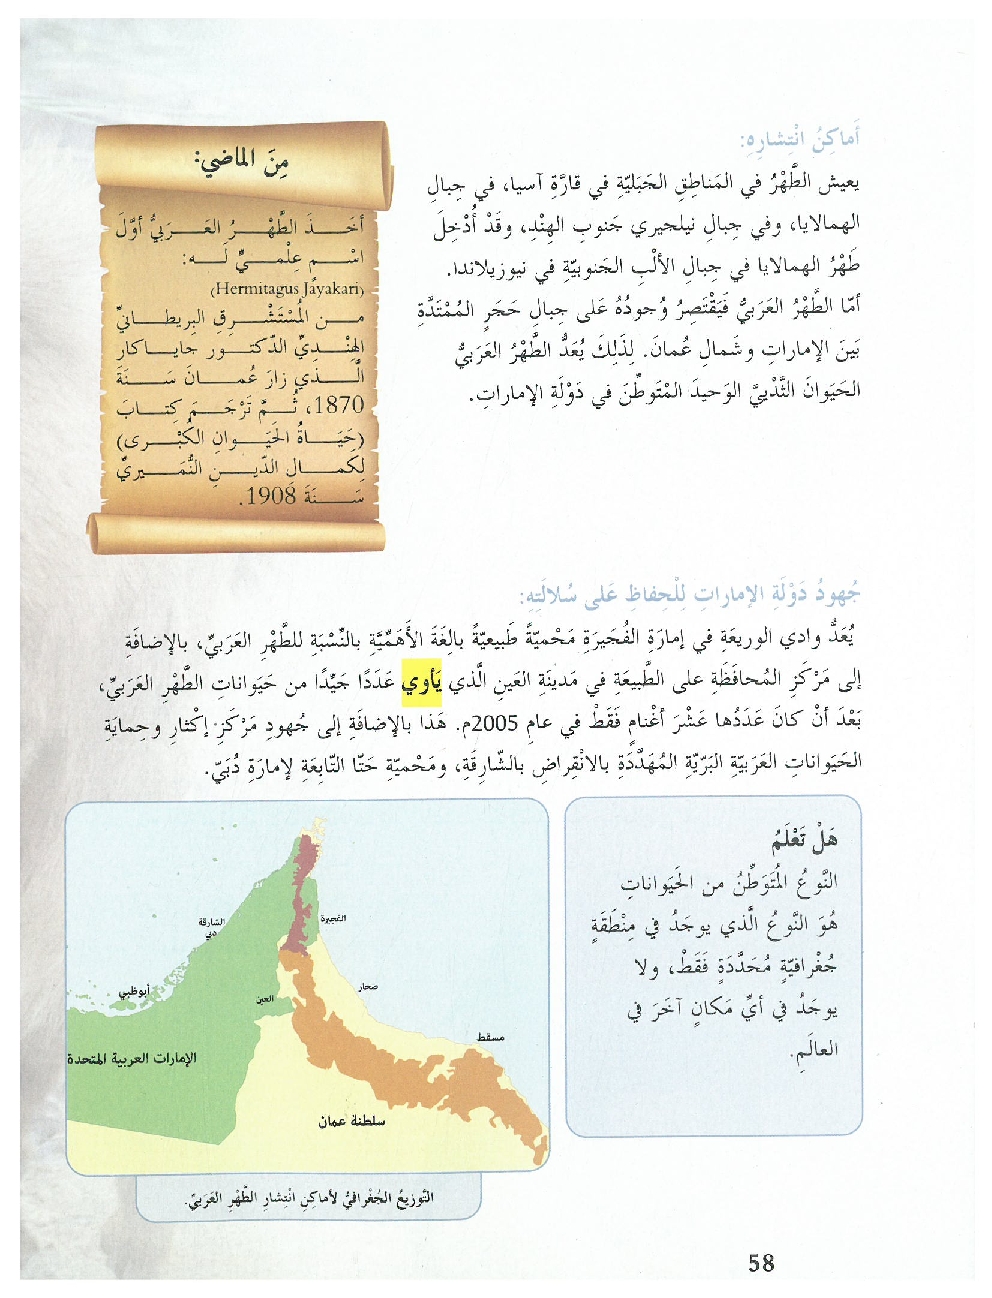 أَماكِنُ انْتِشارِهِ:
يعيش الطَّهْرُ في المَناطِقِ الجَبَليّةِ في قارّةِ آسيا، في جِبالِ
الهمالايا، وفي جِبالِ نيلجيري جَنوبِ الهِنْدِ، وقَدْ أُدْخِلَ
طَهْرُ الهمالايا في جِبالِ الألْبِ الجَنوبيّةِ في نيوزيلاندا.
أمّا الطَّهْرُ العَرَبيُّ فَيَقْتَصِرُ وُجودُهُ عَلى جِبالِ حَجَرٍ المُمْتَدَّةِ
بَينَ الإماراتِ وشَمالِ عُمانَ. لِذَلِكَ يُعَدُّ الطَّهْرُ العَرَبيُّ
الحَيَوانَ الثَّدْييَّ الوَحيدَ المُتَوطِّنَ في دَوْلَةِ الإماراتِ.
مِنَ الماضي:
أخَـــذَ الطَّهْـــرُ العَـــرَبيُّ أوَّلَ
اسْـــمٍ عِلْمـــيٍّ لَـــه:
(Hermitagus Jayakari)
مـــن المُسْتَشْـــرِقِ البريطـــانيِّ
الهِنْـــديِّ الدّكتـــور جاياكار
الَّـــذي زارَ عُمـــانَ سَـــنَةَ
1870، ثُـــمَّ تَرْجَـــمَ كِتـــابَ
(حَيَـــاةُ الحَيَـــوانِ الكُبْـــرى)
لِكَمـــال الدّيـــنِ النُّمَيْـــريِّ
سَـــنَةَ 1908.
جُهودُ دَوْلَةِ الإماراتِ لِلْحِفاظِ عَلى سُلالَتِهِ:
يُعَدُّ وادي الوريعَةِ في إمارَةِ الفُجَيرَةِ مَحْميّةً طَبيعيّةً بالِغَةَ الأَهَمّيَّةِ بالنِّسْبَةِ للطَّهْرِ العَرَبيِّ، بالإضافَةِ
إلى مَرْكَزِ المُحافَظَةِ على الطَّبيعَةِ في مَدينَةِ العَينِ الَّذي يَأوي عَدَدًا جَيِّدًا من حَيَواناتِ الطَّهْرِ العَرَبيِّ،
بَعْدَ أنْ كانَ عَدَدُها عَشْرَ أغْنامٍ فَقَطْ في عامِ 2005م. هَذا بالإضافَةِ إلى جُهودِ مَرْكَزِ إكْثارِ وحِمايةِ
الحَيَواناتِ العَرَبيّةِ البَرّيّةِ المُهَدَّدَةِ بالانْقِراضِ بالشّارِقَةِ، ومَحْميّةِ حَتّا التّابِعَة لإمارَةِ دُبَيّ.
هَلْ تَعْلَمُ
النَّوعُ المُتَوَطِّنُ من الحَيَواناتِ
هُوَ النَّوعُ الَّذي يوجَدُ في مِنْطَقَةٍ
جُغْرافيّةٍ مُحَدَّدَةٍ فَقَطْ، ولا
يوجَدُ في أيِّ مَكانٍ آخَرَ في
العالَمِ.
الفجيرة
الشارقة
دبي
صحار
أبوظبي
العين
مسقط
الإمارات العربية المتحدة
سلطنة عمان
التَّوزيعُ الجُغْرافيُّ لأماكِنِ انْتِشارِ الطَّهْرِ العَرَبيِّ.
58